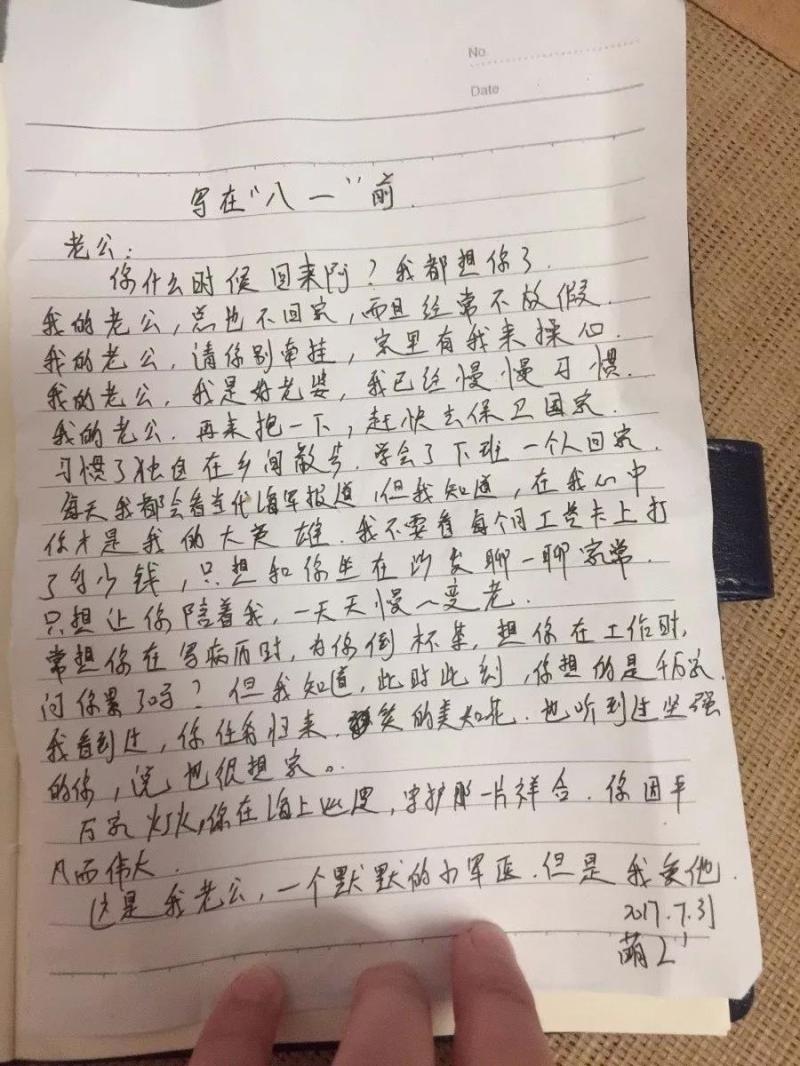 No.
Date
写在"八一"前.
老公:
你什么时候回来阿?我都想你了.
我的老公,总也不回家,而且经常不放假.
我的老公,请你别牵挂,家里有我来操心.
我的老公,我是好老婆,我已经慢慢习惯.
我的老公.再来抱一下,赶快去保卫国家.
习惯了独自在乡间散步.学会了下班一个人回家.
每天我都会看当代海军报道,但我知道,在我心中
你才是我的大英雄.我不要看每个月工资卡上打
了多少钱,只想和你坐在沙发聊一聊家常.
只想让你陪着我,一天天慢慢变老.
常想你在写病历时,为你倒杯茶,想你在工作时,
问你累了吗?但我知道,此时此刻,你想的是千万家.
我看到过,你任务归来.笑的美如花.也听到过坚强
的你,说也很想家。
万家灯火,你在海上巡逻,守护那一片祥合.你因平
凡而伟大.
这是我老公,一个默默的小军医.但是我爱他.
2017.7.31
萌